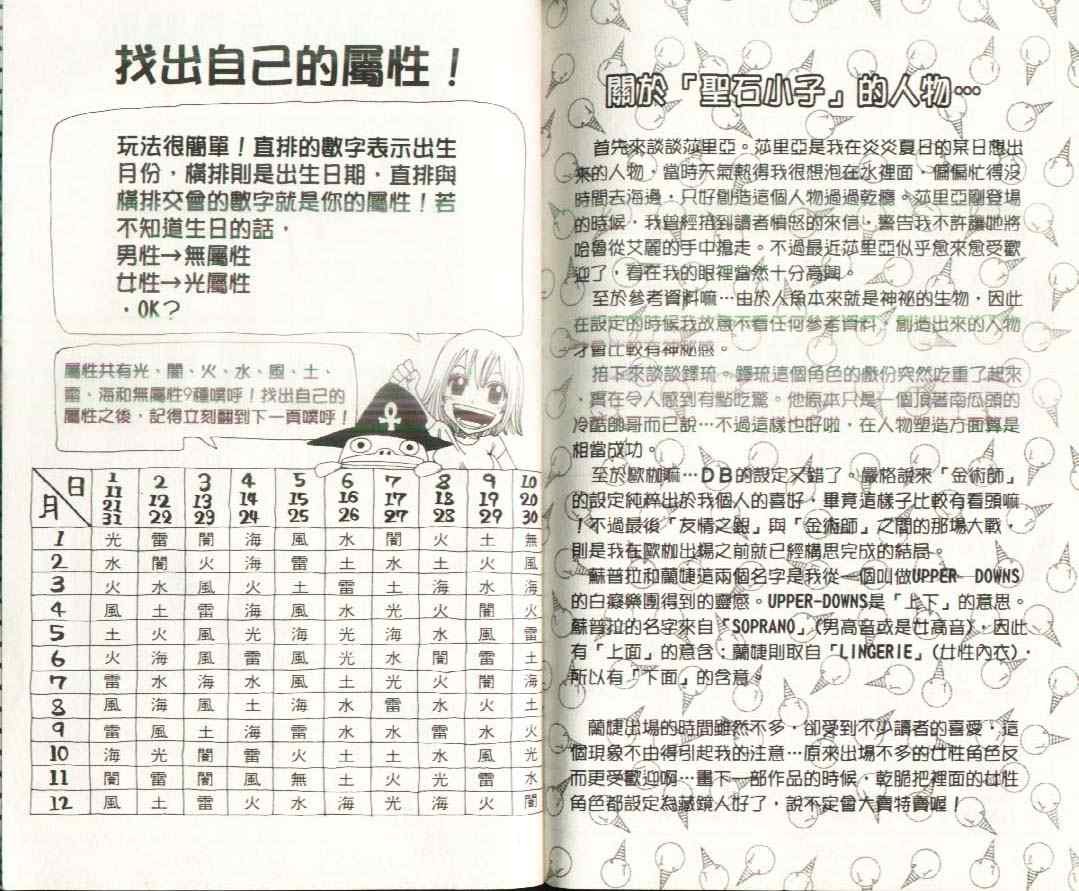 找出自己的屬性！
玩法很簡單！直排的數字表示出生
月份，橫排則是出生日期，直排與
橫排交會的數字就是你的屬性！若
不知道生日的話，
男性→無屬性
女性→光屬性
，OK？
屬性共有光、闇、火、水、風、土、
雷、海和無屬性9種噗呼！找出自己的
屬性之後，記得立刻翻到下一頁噗呼！
月 日 1 11 21 31 2 12 22 3 13 23 4 14 24 5 15 25 6 16 26 7 17 27 8 18 28 9 19 29 10 20 30
1 光 雷 闇 海 風 水 闇 火 土 無
2 水 闇 火 海 雷 土 水 土 火 風
3 火 水 風 火 土 雷 土 海 水 海
4 風 土 雷 海 風 水 光 火 闇 火
5 土 火 風 光 海 光 海 水 風 雷
6 火 海 風 雷 風 光 水 闇 雷 土
7 雷 水 海 水 風 土 光 火 闇 海
8 風 海 風 土 海 水 雷 水 火 土
9 雷 風 土 海 雷 水 水 雷 水 火
10 海 光 闇 雷 火 土 土 水 風 光
11 闇 雷 闇 風 無 土 火 光 雷 水
12 風 土 雷 火 水 海 光 海 火 闇
關於「聖石小子」的人物…
首先來談談莎里亞。莎里亞是我在炎炎夏日的某日想出
來的人物，當時天氣熱得我很想泡在水裡面，偏偏忙得沒
時間去海邊，只好創造這個人物過過乾癮。莎里亞剛登場
的時候，我曾經接到讀者憤怒的來信，警告我不許讓她將
哈魯從艾麗的手中搶走。不過最近莎里亞似乎愈來愈受歡
迎了，看在我的眼裡當然十分高興。
至於參考資料嘛…由於人魚本來就是神祕的生物，因此
在設定的時候我故意不看任何參考資料，創造出來的人物
才會比較有神祕感。
接下來談談鐸琉。鐸琉這個角色的戲份突然吃重了起來
，實在令人感到有點吃驚。他原本只是一個頂著南瓜頭的
冷酷帥哥而已說…不過這樣也好啦，在人物塑造方面算是
相當成功。
至於歐枷嘛…DB的設定又錯了。嚴格說來「金術師」
的設定純粹出於我個人的喜好，畢竟這樣子比較有看頭嘛
！不過最後「友情之銀」與「金術師」之間的那場大戰，
則是我在歐枷出場之前就已經構思完成的結局。
蘇普拉和蘭婕這兩個名字是我從一個叫做UPPER-DOWNS
的白癡樂團得到的靈感。UPPER-DOWNS是「上下」的意思。
蘇普拉的名字來自「SOPRANO」(男高音或是女高音)，因此
有「上面」的意含；蘭婕則取自「LINGERIE」(女性內衣)，
所以有「下面」的含意。
蘭婕出場的時間雖然不多，卻受到不少讀者的喜愛，這
個現象不由得引起我的注意…原來出場不多的女性角色反
而更受歡迎啊…畫下一部作品的時候，乾脆把裡面的女性
角色都設定為藏鏡人好了，說不定會大賣特賣喔！